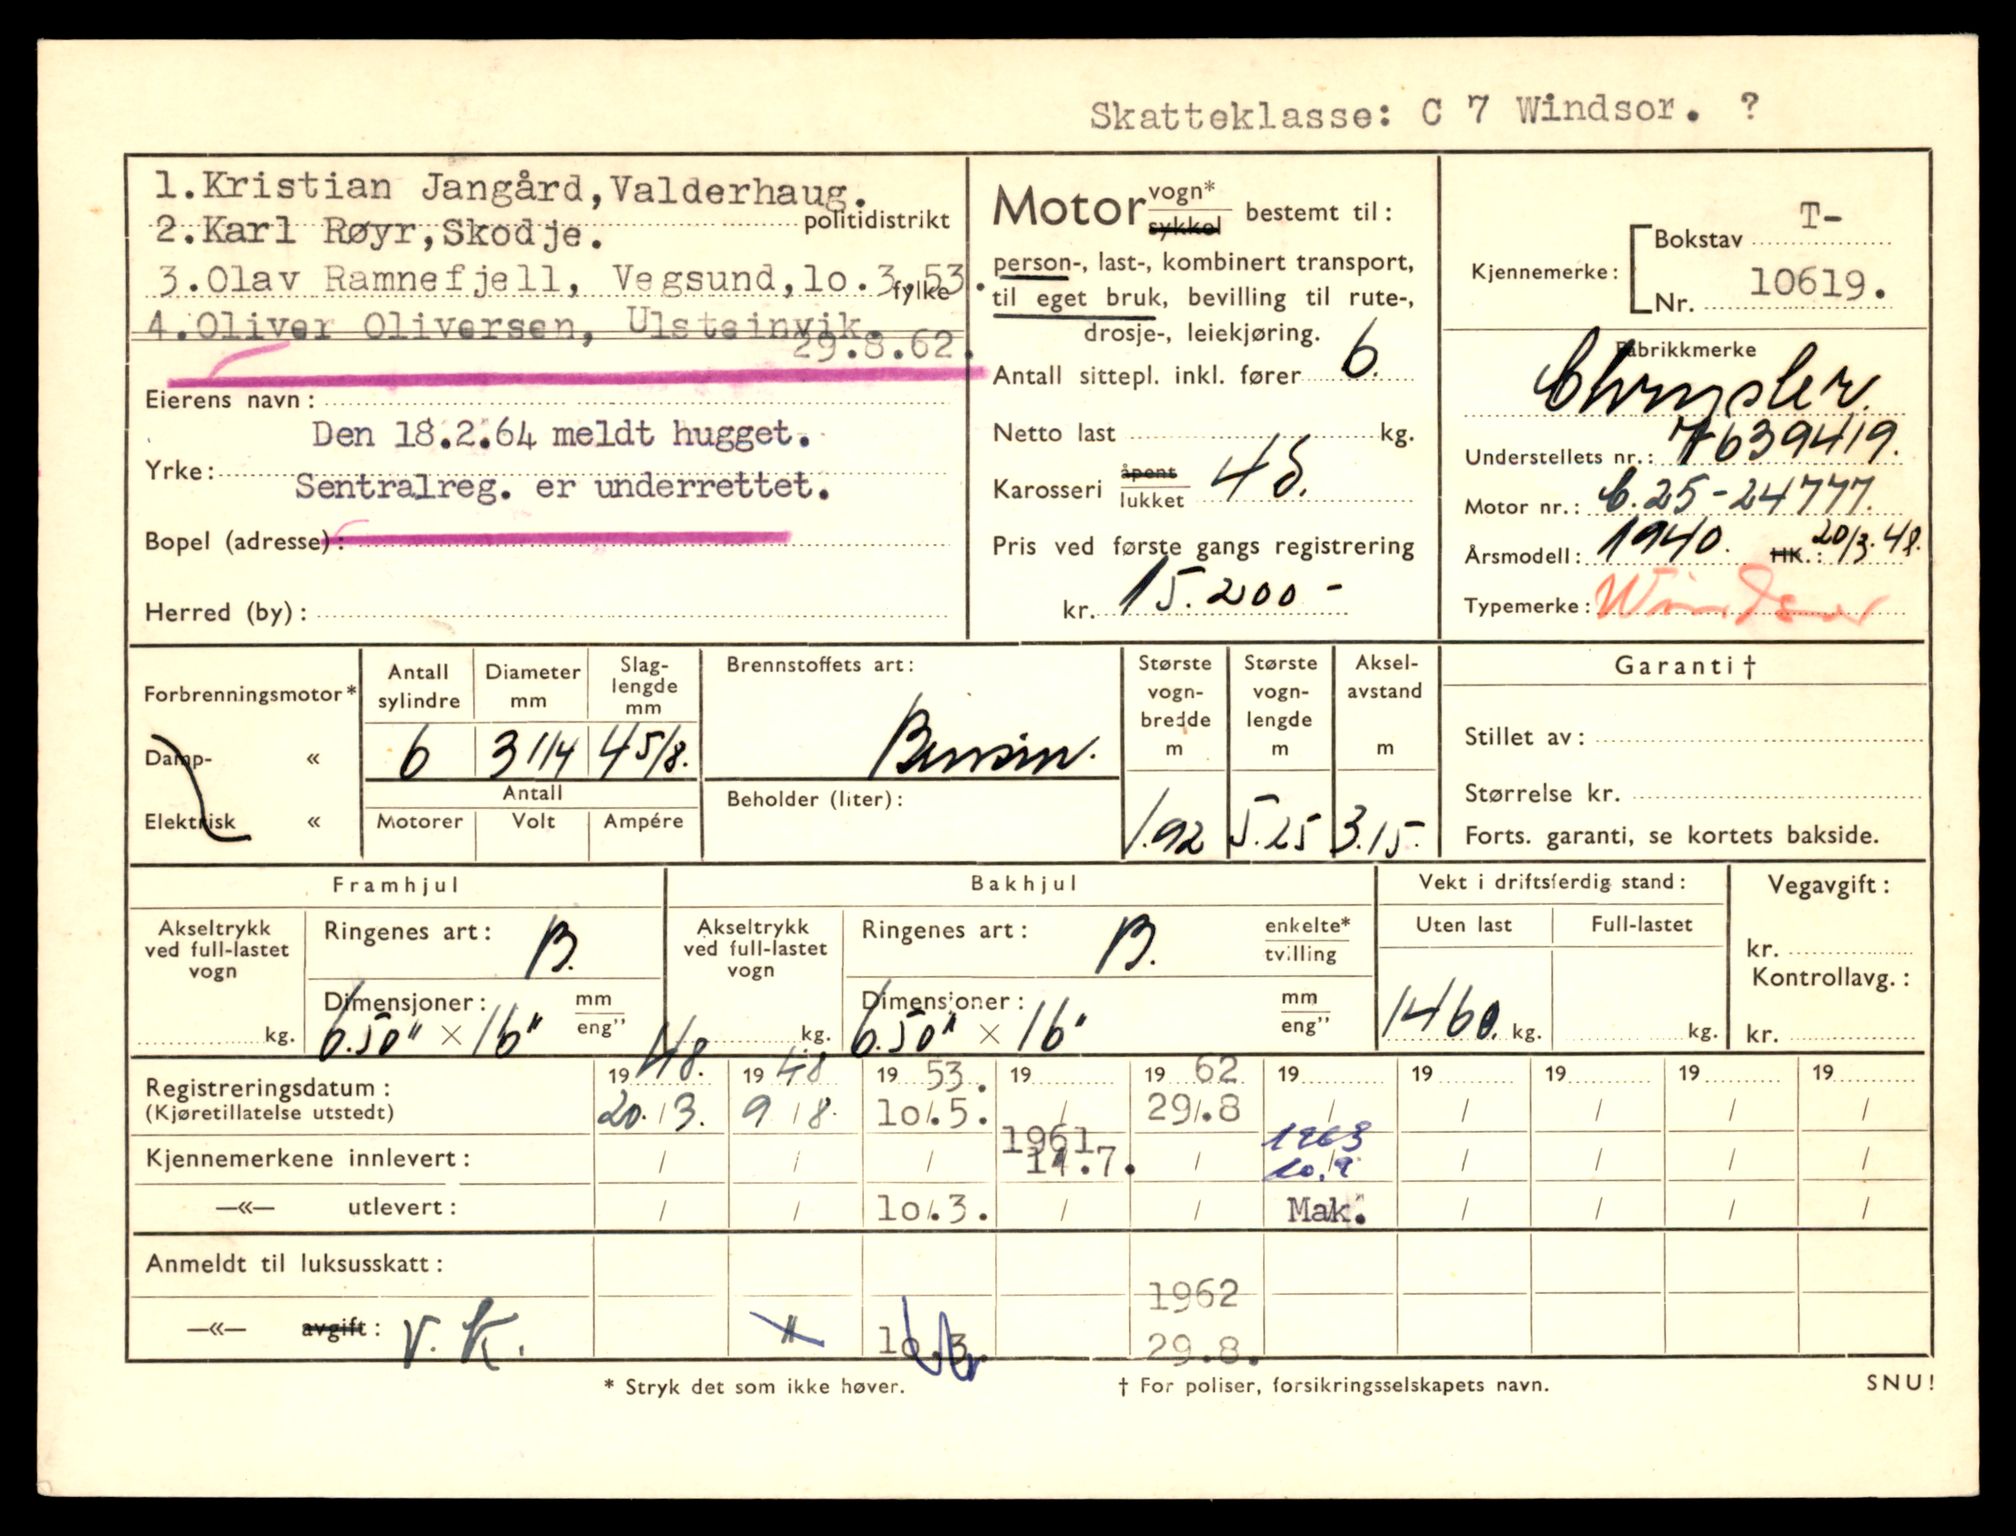 Skatteklasse: C 7 Windsor. ?
1.Kristian Jangård,Valderhaug.
politidistrikt
2.Karl Røyr,Skodje.
3.Olav Ramnefjell, Vegsund,lo.3.53.
fylke
4.Oliver Oliversen, Ulsteinvik.
29.8.62.
Eierens navn:
Den 18.2.64 meldt hugget.
Yrke:
Sentralreg. er underrettet.
Bopel (adresse):
Herred (by):
Motor vogn* sykkel bestemt til:
person-, last-, kombinert transport,
til eget bruk, bevilling til rute-,
drosje-, leiekjøring.
Antall sittepl. inkl. fører 6.
Netto last kg.
Karosseri åpent lukket 4d.
Pris ved første gangs registrering
kr. 15.200 -
Kjennemerke: Bokstav T-
Nr. 10619.
Fabrikkmerke
Chrysler.
Understellets nr.: 7639419.
Motor nr.: C.25-24777.
Årsmodell: 1940. HK.: 20/3.48.
Typemerke: Windsor
Forbrenningsmotor*
Damp- «
Elektrisk «
Antall sylindre
Diameter mm
Slag-lengde mm
6 3 1/4 4 5/8.
Antall
Motorer Volt Ampére
Brennstoffets art:
Bensin.
Beholder (liter):
Største vogn-bredde m
Største vogn-lengde m
Aksel-avstand m
1.92 5.25 3.15.
Garanti †
Stillet av:
Størrelse kr.
Forts. garanti, se kortets bakside.
Framhjul
Akseltrykk ved full-lastet vogn
kg.
Ringenes art: B.
Dimensjoner: mm eng”
6.50" × 16"
Bakhjul
Akseltrykk ved full-lastet vogn
kg.
Ringenes art: B. enkelte* tvilling
Dimensjoner: mm eng”
6.50" × 16"
Vekt i driftsferdig stand:
Uten last Full-lastet
1460. kg. kg.
Vegavgift:
kr.
Kontrollavg.:
kr.
Registreringsdatum: 19 48. 19 48 19 53. 19 19 62 19 19 19 19 19
(Kjøretillatelse utstedt) 20./3. 9/8. lo/.5. / 29/.8 / / / / /
1961 1963
Kjennemerkene innlevert: / / / 17.7. / 20.9 / / / /
—«— utlevert: / / lo/.3. / / Mak. / / / /
Anmeldt til luksusskatt:
1962
—«— avgift: V.K. " lo.3. 29.8.
* Stryk det som ikke høver.
† For poliser, forsikringsselskapets navn.
SNU!